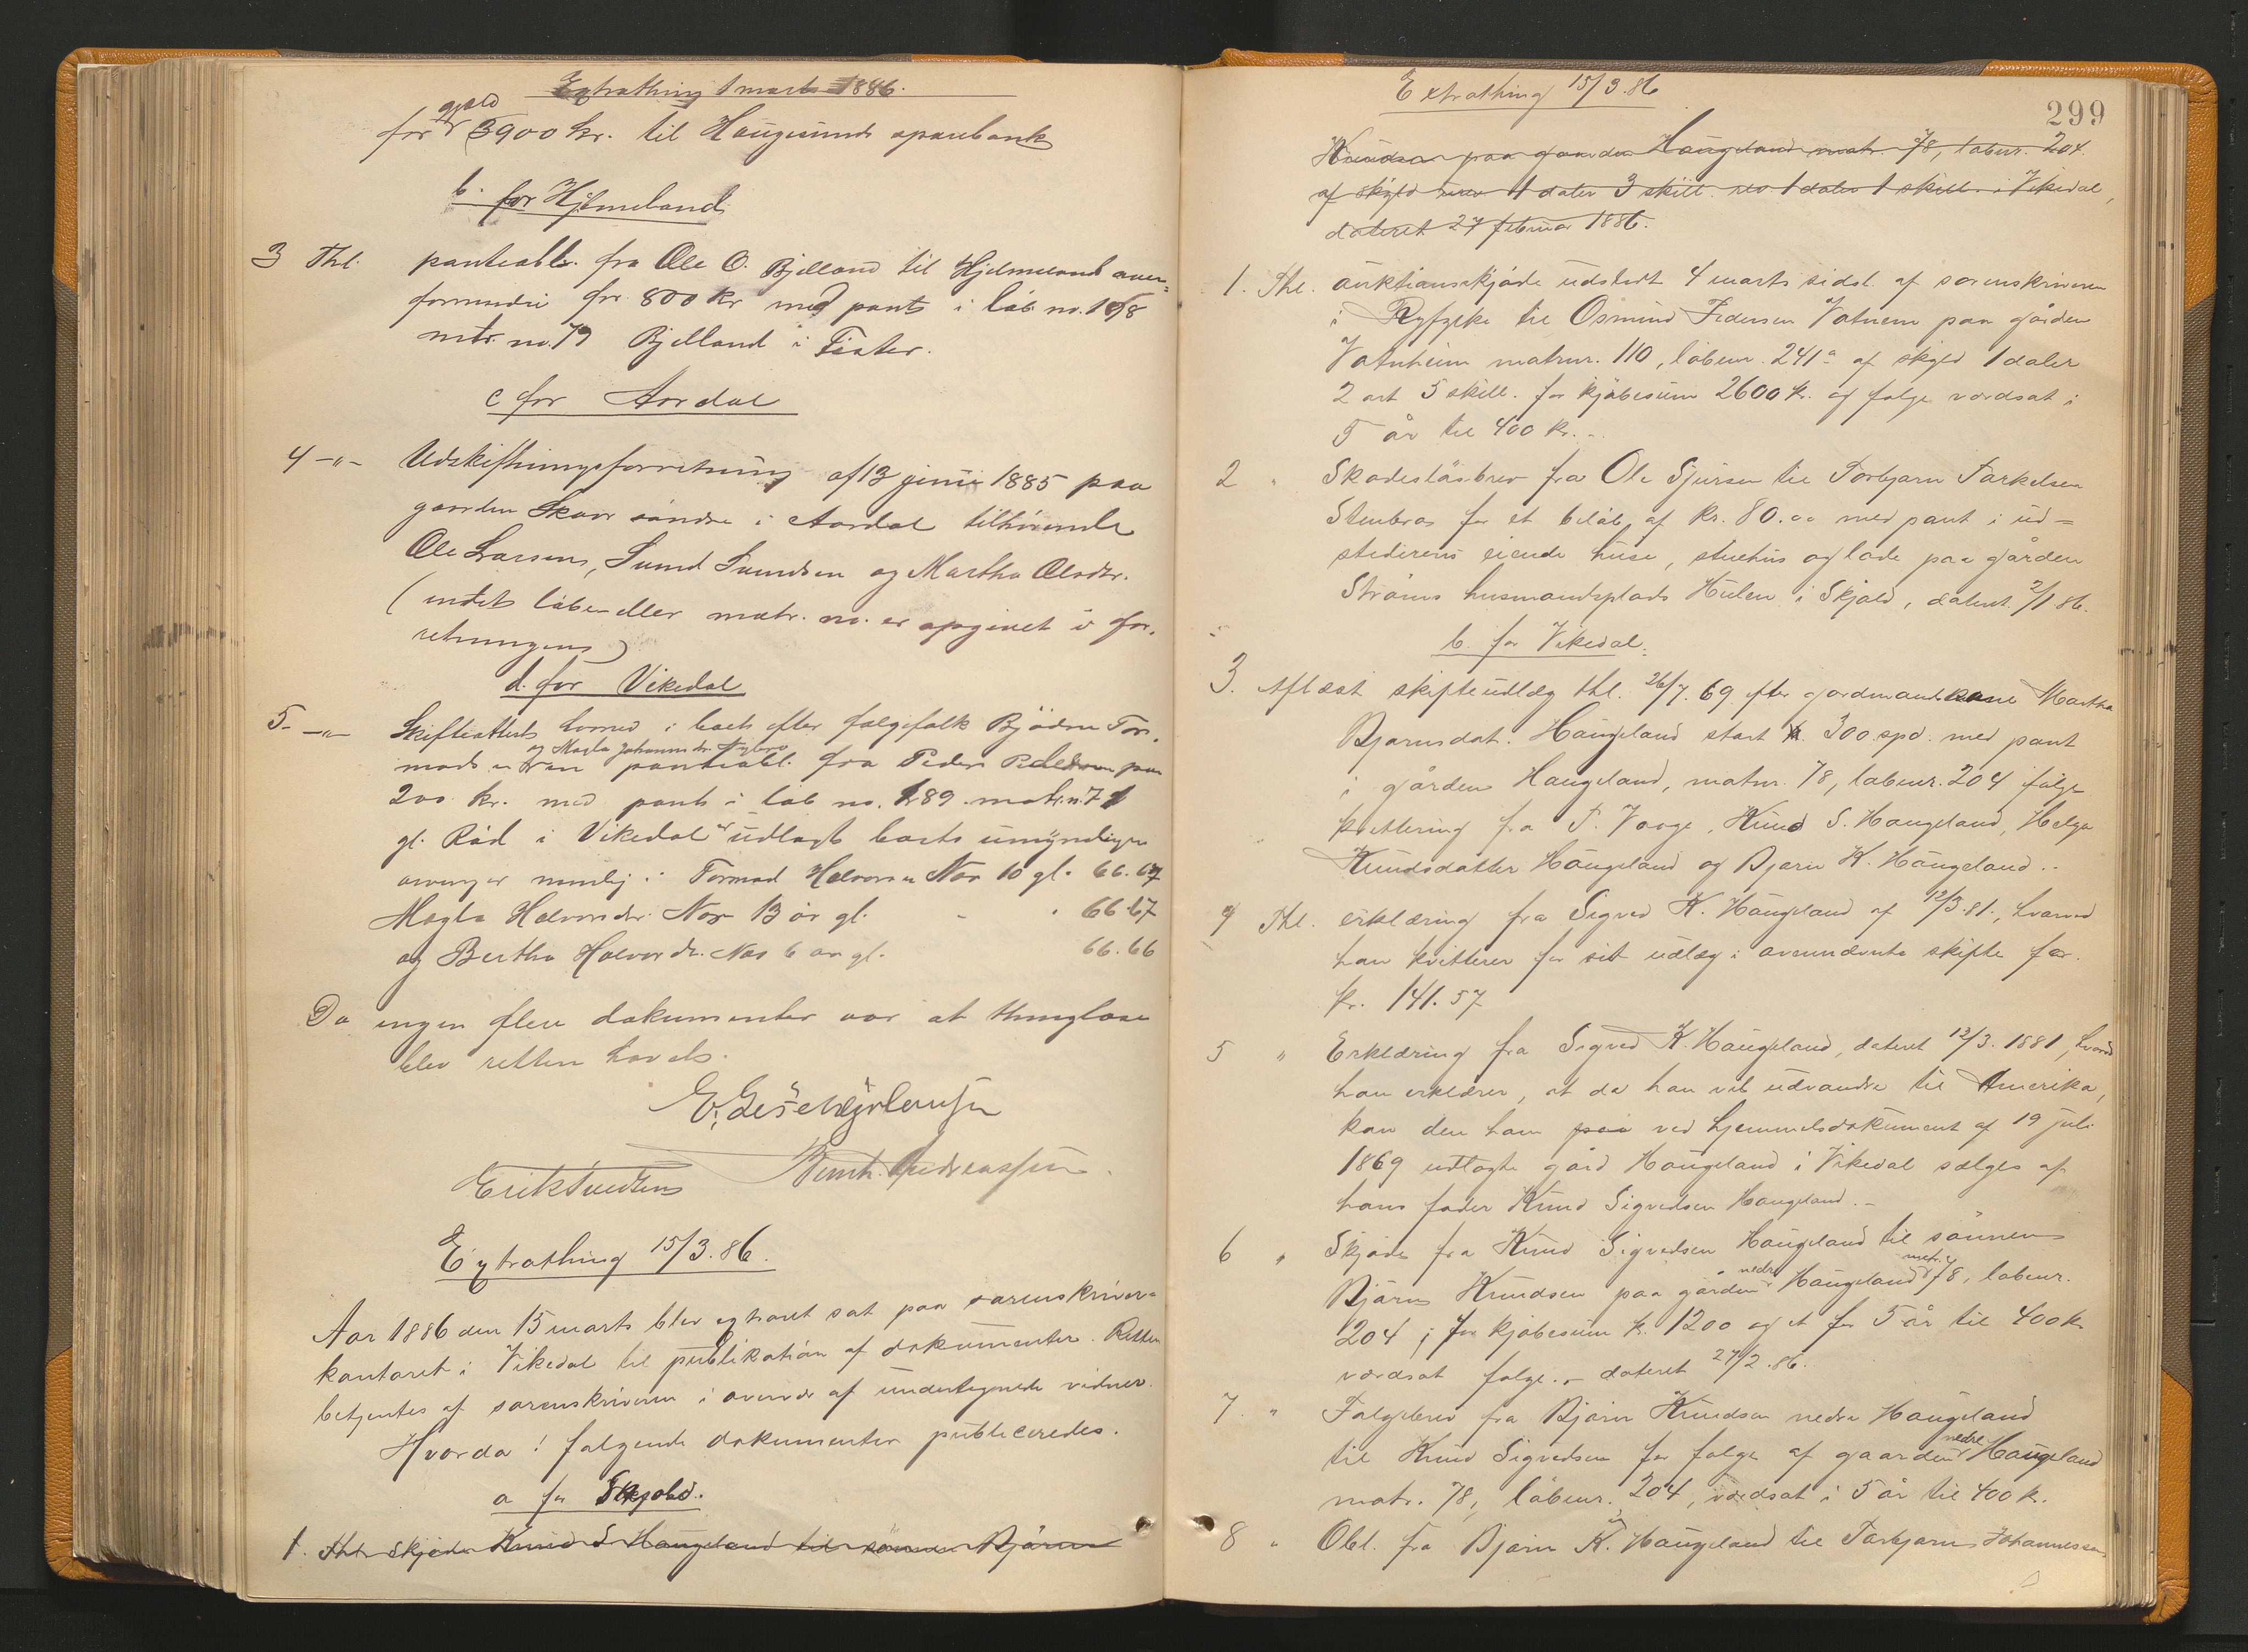 Extrathing 1 marts 1886.
for gjæld 3900 kr. til Haugesunds sparebank
b. for Hjelmeland
3 Thl. panteobl. fra Ole O. Bjelland til Hjelmelands over-
formynderi for 800 kr med pant i löb no. 168
mtr. no. 79 Bjelland i Fister.
c for Aardal
4 -"- Udskiftningsforretning af 13 juni 1885 paa
gaarden Skaar söndre i Aardal tilhörende
Ole Larsen, Svend Svendsen og Martha Olsdtr.
(intet löbe eller matr. no. er opgivet i for-
retningen)
d. for Vikedal
5 -"- Skifteattest hvorved i boet efter folgefolk Björn Tor-
mods og Magla Johannesdtr panteobl. fra Peder Pedersen paa
200 kr. med pant i löb no. 189 matr. n. 71
gl. Röd i Vikedal er udlagt boets umyndige
arvinger nemlig: Tormod Halvorsen Nor 10 gl. 66.67
Magla Halvorsdr. Nor 13 år gl. - " 66.67
og Bertha Halvorsdr. Nor 6 aar gl. 66.66
Da ingen flere dokumenter var at thinglæse
blev retten hævet.
Erik Svendsen
Bernh. Andreassen
Extrathing 15/3.86.
Aar 1886 den 15 marts blev extraret sat paa sorenskriver-
kontoret i Vikedal til publikation af dokumenter. Retten
betjentes af sorenskriveren i overvær af undertegnede vidner.
Hvorda! folgende dokumenter publiceredes.
a for Skjold.
1. Thl. Skjöde Knud S Haugeland til sönnen Björn
Extrathing 15/3.86
299
Knudsen paa gaarden Haugeland matr. 78, löbenr. 204
af skyld 1 daler 3 skill. rev 1 daler 1 skill. i Vikedal,
dateret 27 februar 1886.
1. Thl. auktionsskjöde udstedt 4 marts sidst. af sorenskriveren
i Ryfylke til Osmund Pedersen Vatnem paa gården
Vatnheim matrnr. 110, löbenr. 241a af skyld 1 daler
2 ort 5 skill. for kjöbesum 2600 kr. og folge værdsat i
5 år til 400 kr. -
2 " Skadeslösbrev fra Ole Sjursen til Torbjörn Torkelsen
Stenbraa for et belöb af kr. 80.00 med pant i ud-
stederens eiende huse, stuehus og lade paa gården
Ströms husmandsplads Hulen i Skjold, dateret 2/1 86.
b. for Vikedal.
3. Aflæst skifteudlæg thl. 26/7.69 efter gardmandskone Martha
Bjornsdat. Haugeland stort 300 spd. med pant
i gården Haugeland, matrnr. 78, löbenr. 204 ifölge
kvittering fra P. Vaage, Knud S. Haugeland, Helga
Knudsdatter Haugeland og Bjorn K. Haugeland. -
4 Thl. erklæring fra Sigvad K. Haugeland af 12/3 81, hvorved
han kvitterer for sit udlæg i ovennævnte skifte for
kr. 141.57
5 " Erklæring fra Sigvad K. Haugeland, dateret 12/3. 1881, hvorved
han erklærer, at da han vil udvandre til Amerika,
kan den ham paa ved hjemmelsdokument af 19 juli
1869 udlagte gård Haugeland i Vikedal sælges af
hans fader Knud Sigvadsen Haugeland. -
6 " Skjöde fra Knud Sigvadsen Haugeland til sönnen
Björn Knudsen paa gården nedre Haugeland matr. 78, löbenr.
204, for kjöbesum kr. 1200 og et for 5 år til 400 kr
værdsat folge. - dateret 27/2.86.
7. " Folgebrev fra Bjorn Knudsen nedre Haugeland
til Knud Sigvadsen for folge af gaarden nedre Haugeland
matr. 78, löbenr. 204, værdsat i 5 år til 400 kr.
8 " Obl. fra Bjorn K. Haugeland til Torbjorn Johannessen